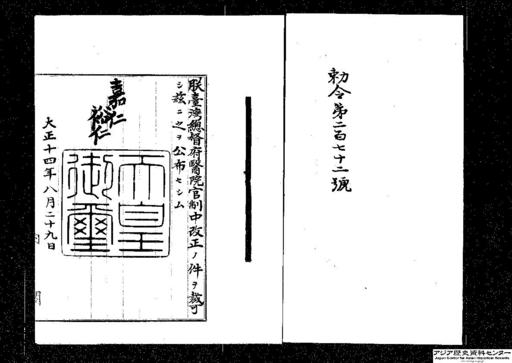 勅令第二百七十二號
朕臺灣總督府醫院官制中改正ノ件ヲ裁可
シ茲ニ之ヲ公布セシム
嘉仁
裕仁
天皇
御璽
大正十四年八月二十九日
アジア歴史資料センター
Japan Center for Asian Historical Records